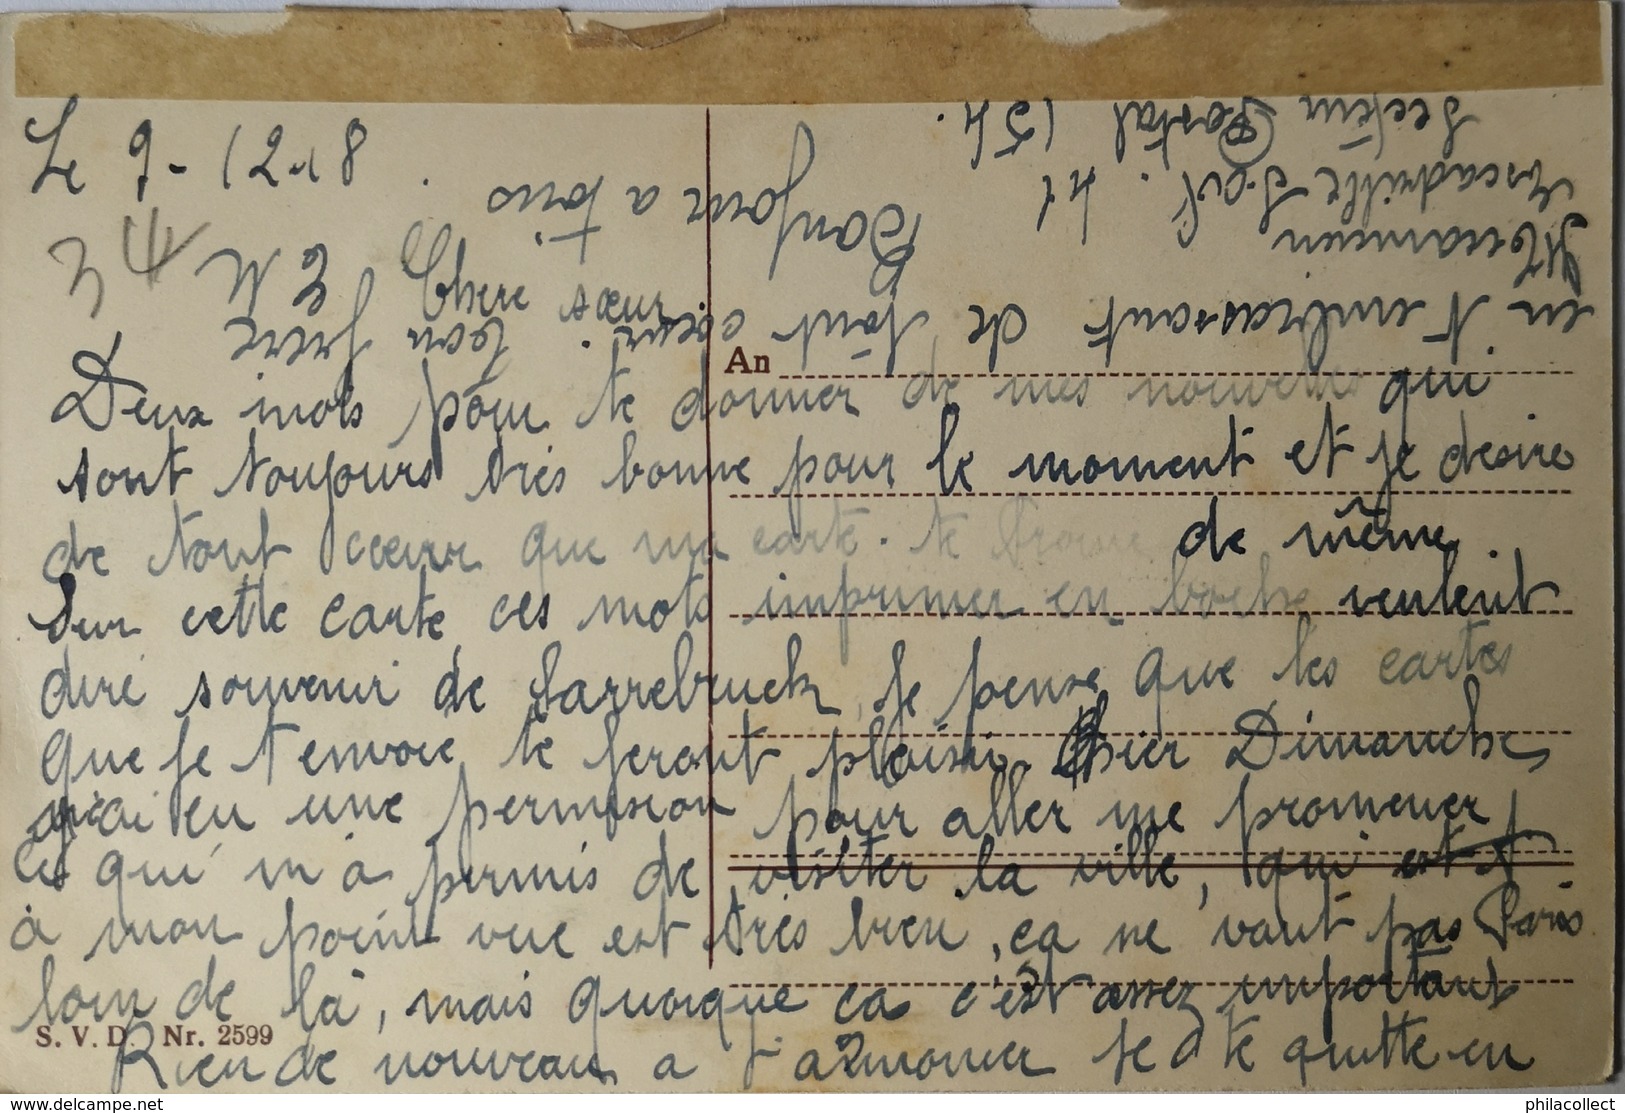 Le 9-12-18.
34
Chere sœur
Deux mois pour te donner de mes nouvelles qui
sont toujours très bonne pour le moment et je desire
de tout cœur que ma carte. te trouve de même.
Sur cette carte, ces mots imprimer en boche veulent
dire souvenir de Sarrebruck, je pense que les cartes
que je t'envoie te feront plaisir. Hier Dimanche,
j'ai eu une permission pour aller me promener,
ce qui m'à permis de visiter la ville, qui est
à mon point vue est très bien, ça ne vaut pas Paris
loin de là, mais quoique ça c'est assez important
Rien de nouveau a t'annoncer je te quitte en
en t'embrassant de tout cœur. ton frere
Bonjour a tous
Mécanicien
Escadrille 41
Secteur Postal 154.
An
S. V. D. Nr. 2599
https://www.delcampe.net
philacollect